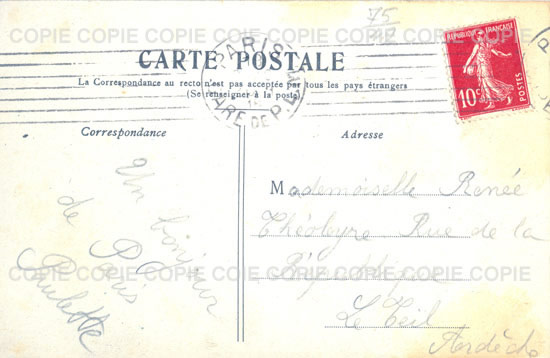 COPIE COPIE COPIE COPIE COPIE COPIE COPIE
75
CARTE POSTALE
La Correspondance au recto n'est pas acceptée par tous les pays étrangers
(Se renseigner à la poste)
PARIS
GARE DE P.L.M
REPUBLIQUE FRANÇAISE
10c
POSTES
Correspondance
Adresse
Un bonjour
de Paris
Paulette
Mademoiselle Renée
Rue de la
République
Le Teil
Ardèche
COPIE COPIE COPIE COPIE COPIE COPIE COPIE